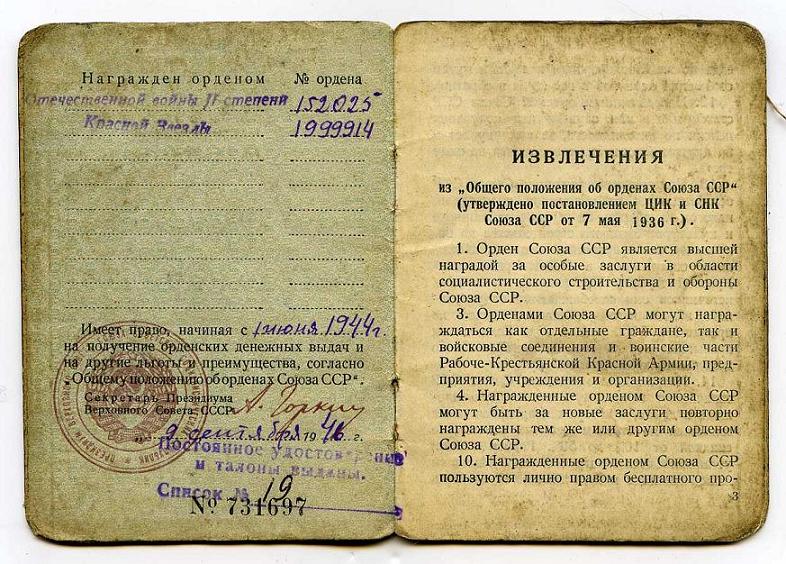 Награжден орденом № ордена
Отечественной войны II степени 152025
Красной Звезды 1999914
Имеет право, начиная с 1 июня 1944г.
на получение орденских денежных выдач и
на другие льготы и преимущества, согласно
„Общему положению об орденах Союза ССР“.
Секретарь Президиума
Верховного Совета СССР А. Горкин
„9“ сентября 1946 г.
Постоянное удостоверение
и талоны выданы.
Список № 19
№ 731697
ИЗВЛЕЧЕНИЯ
из „Общего положения об орденах Союза ССР“
(утверждено постановлением ЦИК и СНК
Союза ССР от 7 мая 1936 г.).
1. Орден Союза ССР является высшей
наградой за особые заслуги в области
социалистического строительства и обороны
Союза ССР.
3. Орденами Союза ССР могут награ-
ждаться как отдельные граждане, так и
войсковые соединения и воинские части
Рабоче-Крестьянской Красной Армии, пред-
приятия, учреждения и организации.
4. Награжденные орденом Союза ССР
могут быть за новые заслуги повторно
награждены тем же или другим орденом
Союза ССР.
10. Награжденные орденом Союза ССР
пользуются лично правом бесплатного про-
3